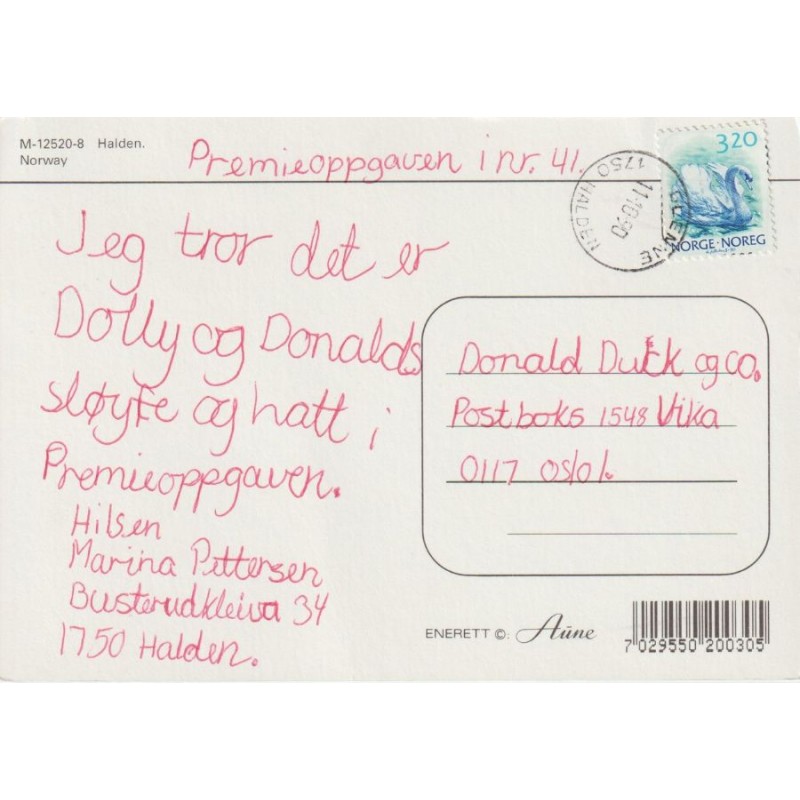 M-12520-8 Halden.
Norway
Premieoppgaven i nr. 41.
3.20
NORGE·NOREG
GLENNE
11-10-90
1750 HALDEN
Jeg tror det er
Dolly og Donalds
sløyfe og hatt i
Premieoppgaven.
Hilsen
Marina Pettersen
Busterudkleiva 34
1750 Halden.
Donald Duck og co.
Postboks 1548 Vika
0117 oslo 1.
ENERETT ©: Aüne
7 029550 200305